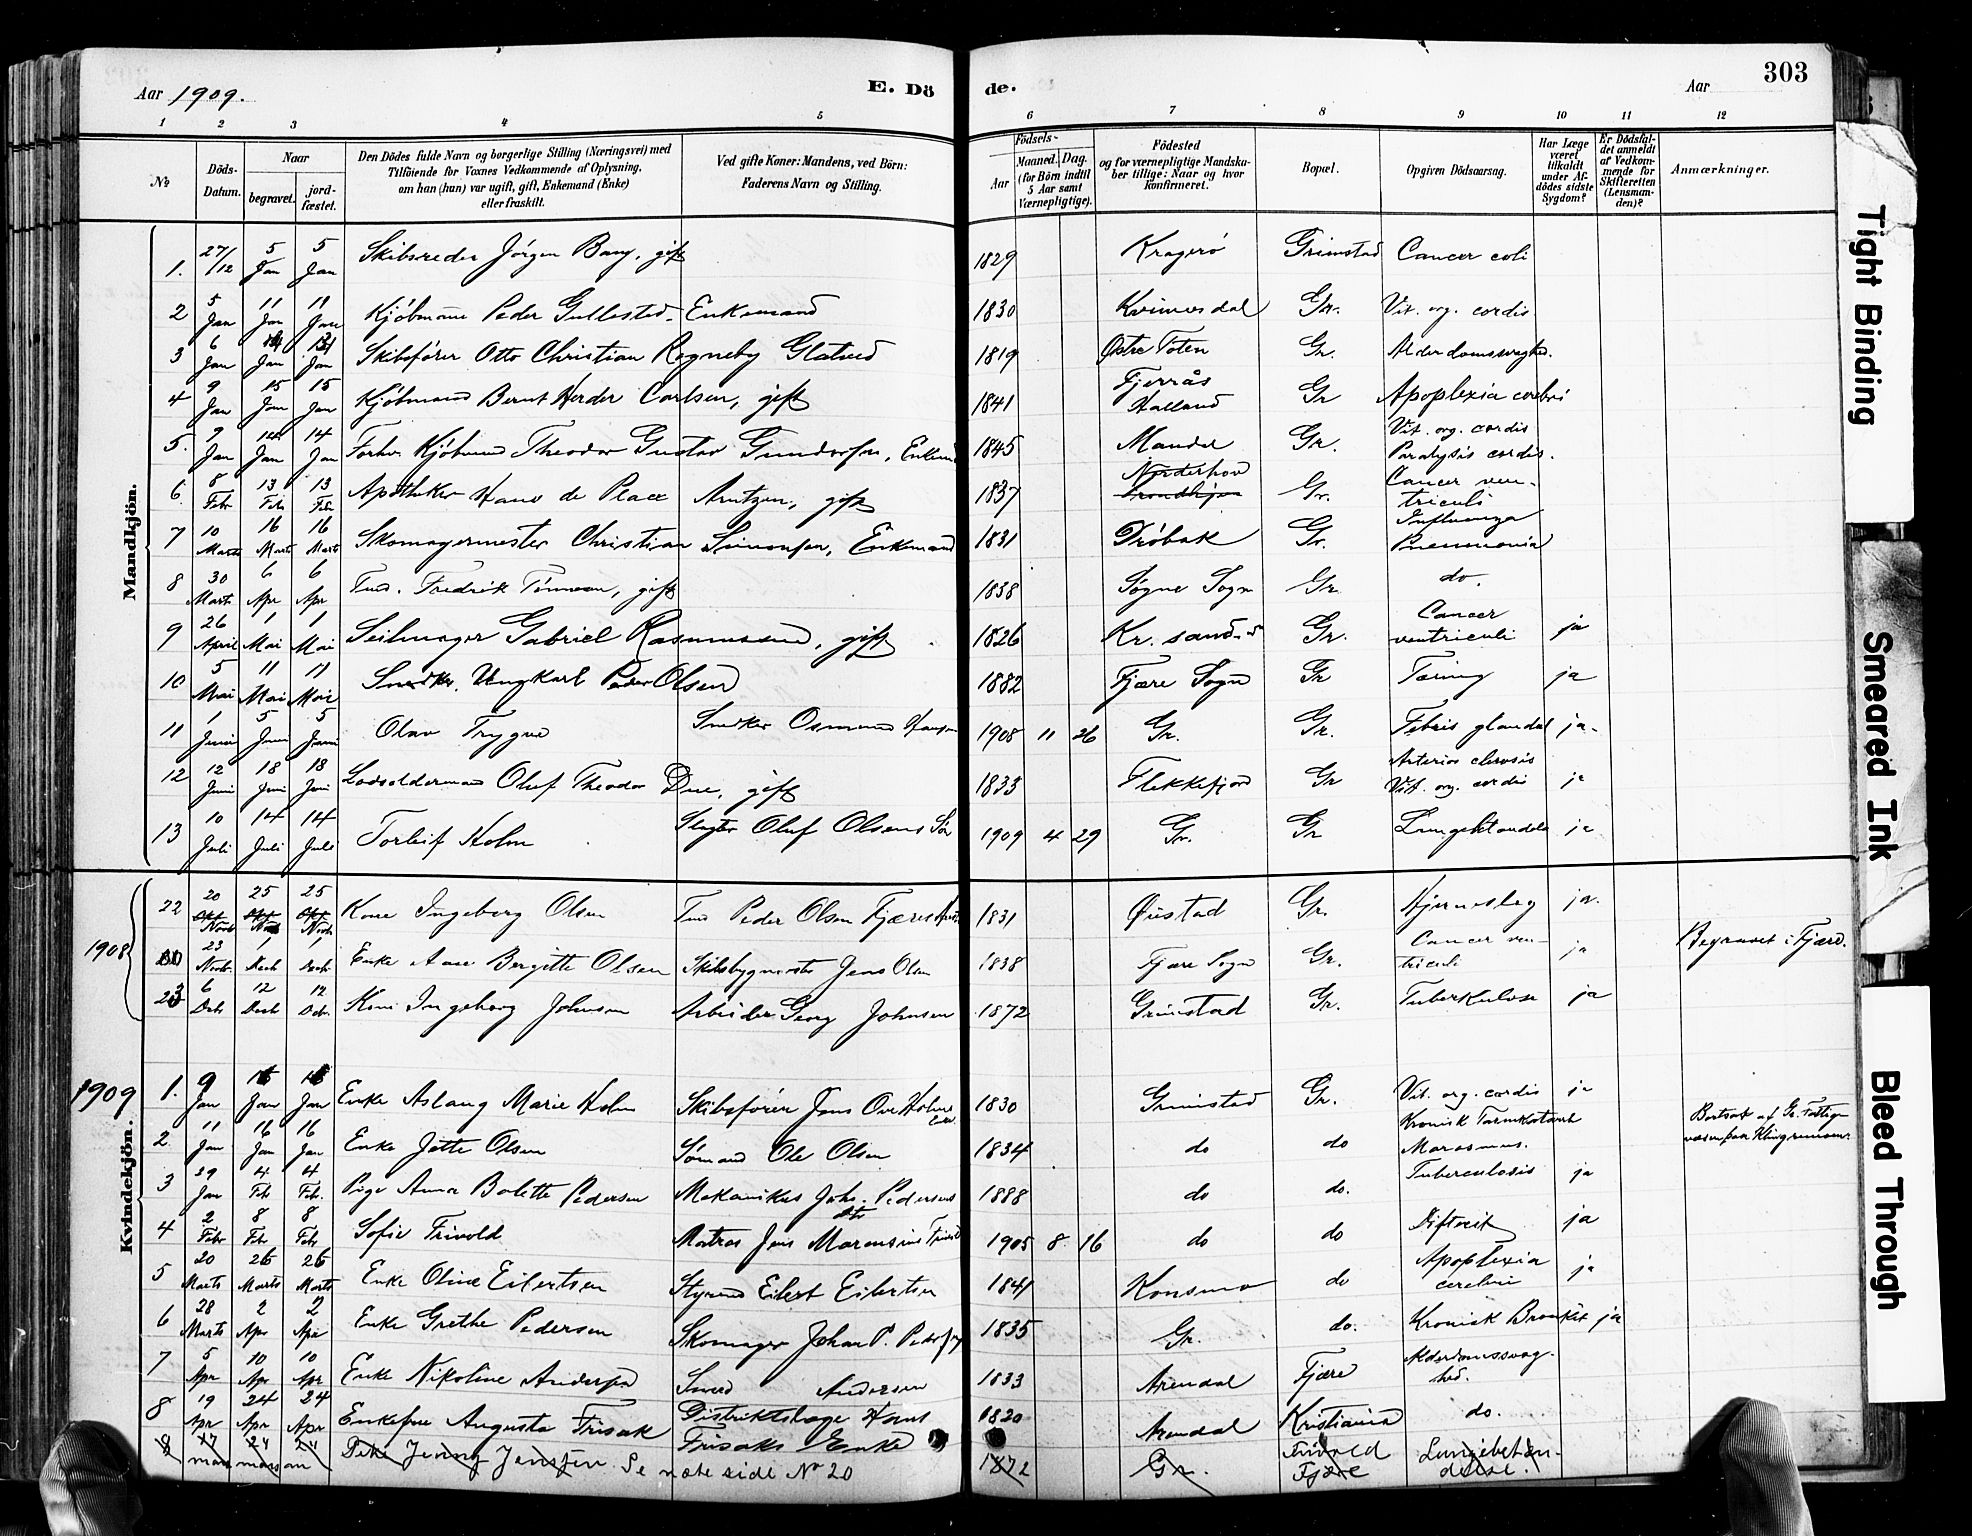 Aar 1909.
E. Dö
de.
Aar
303
1 2 3 4 5 6 7 8 9 10 11 12
No
Döds-Datum.
Naar
begravet.
jord-fæstet.
Den Dödes fulde Navn og borgerlige Stilling (Næringsvei) med
Tilföiende for Voxnes Vedkommende af Oplysning,
om han (hun) var ugift, gift, Enkemand (Enke)
eller fraskilt.
Ved gifte Koner: Mandens, ved Börn:
Faderens Navn og Stilling.
Födsels-
Aar
Maaned. Dag.
(for Börn indtil
5 Aar samt
Værnepligtige).
Födested
og for værnepligtige Mandska-
ber tillige: Naar og hvor
konfirmeret.
Bopæl.
Opgiven Dödsaarsag.
Har Læge
været
tilkaldt
under Af-
dödes sidste
Sygdom?
Er Dödsfal-
det anmeldt
af Vedkom-
mende for
Skifteretten
(Lensman-
den)?
Anmærkninger.
Mandkjön.
1. 27/12 5 Jan 5 Jan Skibsreder Jörgen Bang, gift 1829 Kragerö Grimstad Cancer coli
2 5 Jan 11 Jan 11 Jan Kjöbmann Peder Gullestad. Enkemand 1830 Kvinesdal Gr. Vit. org. cordis
3 6 Jan Jan Jan Skibsförer Otto Christian Rogneby Glatved 1819 Østre Toten Gr. Alderdomssvaghed.
4 9 Jan 15 Jan 15 Jan Kjöbmand Bernt Herder Carlsen, gift 1841 Fjerrås Halland Gr Apoplexia cerebri
5. 9 Jan 14 Jan 14 Jan Forhv. Kjöbmand Theodor Gustav Gundersen, Enkemd 1845 Mandal Gr. Vit. org. cordis Paralysis cordis.
6. 8 Febr 13 Febr 13 Febr Apotheker Hans de Place Arntzen, gift 1837 Norderhov Gr. Cancer ventriculi
7 10 Marts 16 Marts 16 Marts Skomagermester Christian Simonsen, Enkemand 1831 Dröbak Gr. Influenza Pneumonia
8 30 Marts 6 Apr 6 Apr Fredrik Tönnesen, gift 1838 Søgne Sogn Gr. do.
9 26 April 1 Mai 1 Mai Seilmager Gabriel Rasmussen, gift 1826 Kr. sand Gr. Cancer ventriculi ja
10 5 Mai 11 Mai 11 Mai Snedker. Ungkarl Peder Olsen 1882 Fjære Sogn Gr Tæring ja
11 1 Juni 5 Juni 5 Juni Olav Trygve Snedker Osmund Hansen 1908 11 26 Gr. Gr. Febris glandul ja.
12 12 Juni 18 Juni 18 Juni Lodsoldermand Oluf Theodor Due, gift 1833 Flekkefjord Gr Arterios clerosis Vit. org. cordis ja
13 10 Juli 14 Juli 14 Juli Torleif Holm Slagter Oluf Olsens Sön 1909 4 29 Gr. Gr ja
1908
22 20 Novb 25 Novb 25 Novb Kone Ingeborg Olsen Peder Olsen Fjæres 1831 Øiestad Gr. Hjerneslag ja. Begravet i Fjære.
23 Novb. 1 Decb 1 Decb Enke Ane Bergitte Olsen Skibsbygmester Jens Olsen 1838 Fjære Sogn Gr. Cancer ventriculi ja
23 6 Decb 12 Decb 12 Decb. Kone Ingeborg Johnsen Arbeider Georg Johnsen 1872 Grimstad Gr. Tuberkulose ja
1909
Kvindekjön.
1. 9 Jan Jan Jan Enke Aslaug Marie Holm Skibsförer Jens Ove Holms Enke. 1830 Grimstad Gr. Vit. org. cordis ja
2. 11 Jan 16 Jan 16 Jan Enke Jette Olsen Sömand Ole Olsen 1834 do do Kronisk Tarmkatarrh Marasmus. Bortsat af Gr. Fattigvæsen paa
3 29 Jan 4 Febr 4 Febr. Pige Anna Bolette Pedersen Mekanikus Johs. Pedersens Dtr 1888 do do. Tuberculosis ja
4 2 Febr 8 Febr 8 Febr Sofie Frivold Matros Jens Marensius Frivold 1905 8 16 do do Difterit ja
5 20 Marts 26 Marts 26 Marts Enke Oline Eilertsen Styrmd Eilert Eilertsen 1841 Konsmo do Apoplexia cerebri ja
6 28 Marts 2 Apr 2 Apr Enke Grethe Pedersen Skomager Johan P. Pedersen 1835 Gr. do. Kronisk Bronkit ja
7 5 Apr 10 Apr 10 Apr Enke Nikoline Andersen Smed Andersen 1833 Arendal Fjære Alderdomssvaghed.
8 19 Apr 24 Apr 24 Apr Enkefrue Augusta Frisak Distriktslæge Hans Frisaks Enke 1820 Arendal Kristiania do.
8 17 mars 24 mars Pike Jenny Jensen Se næste side No 20 1872 Gr. Frivold Fjære Lungebetændelse.
Tight Binding
Smeared Ink
Bleed Through